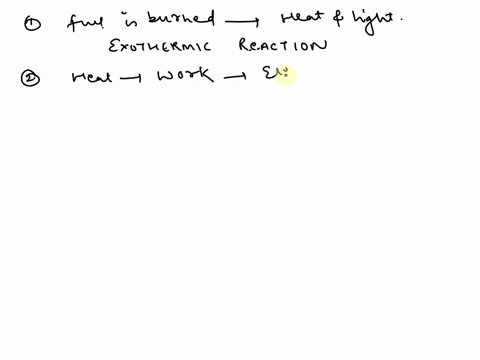 ① fuel is burned → Heat & light.
EXOTHERMIC REACTION
② Heat → Work →